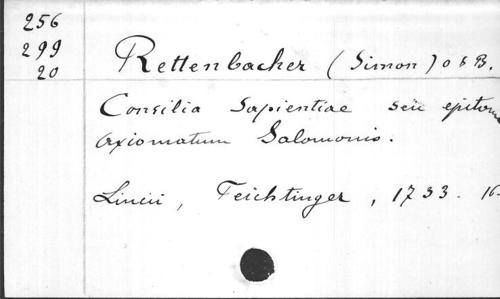 256
299
20
Rettenbacher (Simon) O S B.
Consilia Sapientiae seu epitome
axiomatum Salomonis.
Lincii, Feichtinger, 1733. 16.